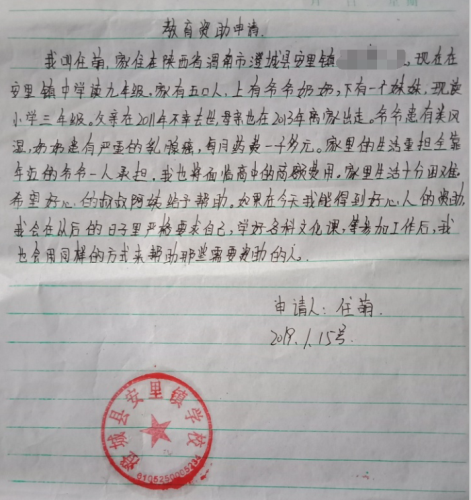 教育资助申请.
我叫任萌,家住在陕西省渭南市澄城县安里镇 。现在在
安里镇中学读九年级,家有五口人,上有爷爷奶奶,下有一个妹妹,现读
小学三年级。父亲在2011年不幸去世,母亲也在2013年离家出走。爷爷患有类风
湿,奶奶患有严重的乳腺癌,每月药费一千多元。家里的生活重担全靠
年迈的爷爷一人承担,我也将面临高中的高额费用。家里生活十分困难,
希望好心的叔叔阿姨给予帮助。如果在今天我能得到好心人的资助,
我会在以后的日子里严格要求自己,学好各科文化课,等参加工作后,我
也会用同样的方式来帮助那些需要资助的人。
申请人:任萌.
2019.1.15号.
澄城县安里镇学校